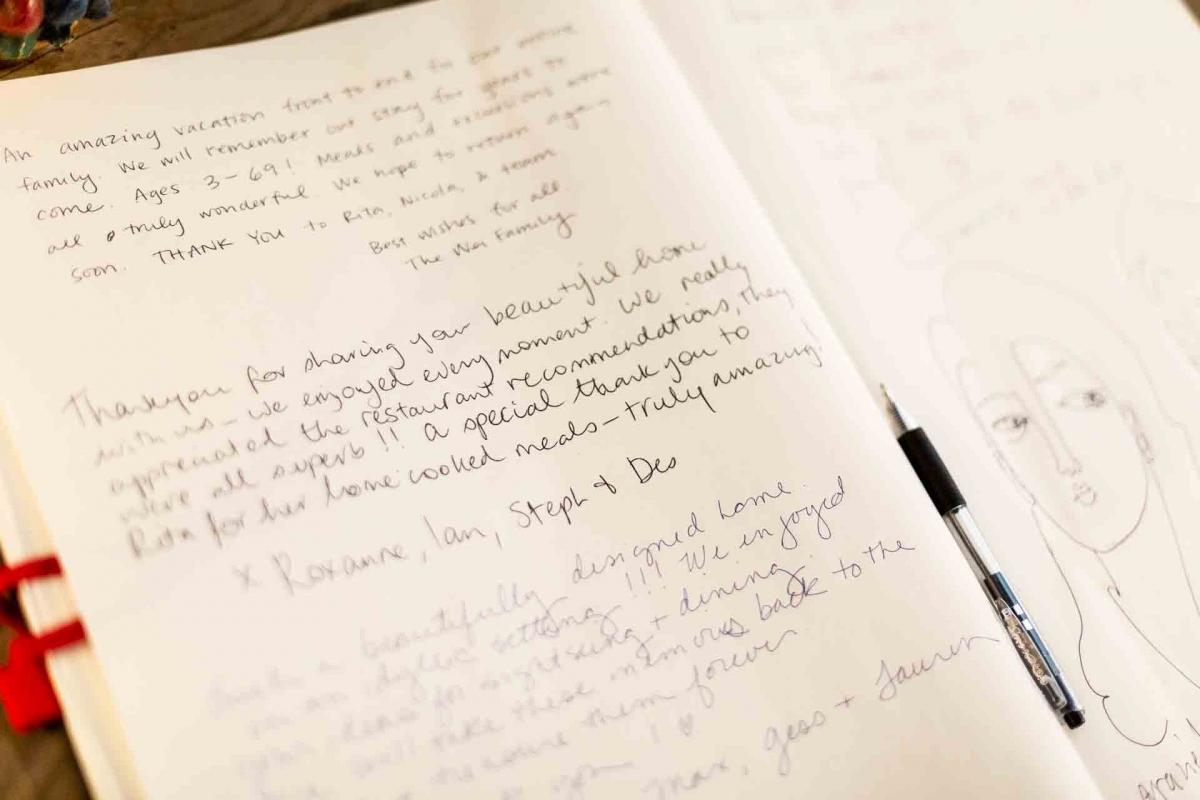 An amazing vacation front to end for our entire
family. We will remember our stay for years to
come. Ages 3-69! Meals and excursions were
all truly wonderful. We hope to return again
soon. THANK YOU to Rita, Nicola, & team
Best wishes for all
The Wei Family
Thankyou for sharing your beautiful home
with us - we enjoyed every moment. We really
appreciated the restaurant recommendations, they
were all superb!! a special thank you to
Rita for her home cooked meals - truly amazing!
x Roxanne, Ian, Steph & Des
Such a beautifully designed home.
in an idylic setting!!! We enjoyed
your ideas for sightseeing + dining
will take these memories back to the
them forever
Max, gess + Lauren